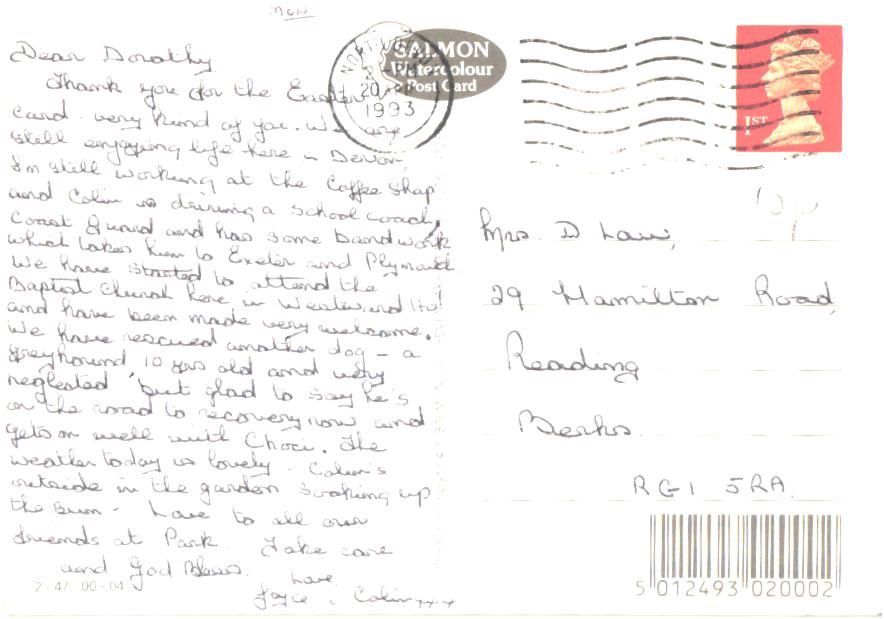 Dear Dorothy
Thank you for the Easter
card. very kind of you. We are
still enjoying life here in Devon,
I'm still working at the Coffee Shop
and Colin is driving a School coach,
Coast Guard and has some bandwork
which takes him to Exeter and Plymouth
We have started to attend the
Baptist Church here in Westward Ho!
and have been made very welcome.
We have rescued another dog - a
greyhound 10 yrs old and very
neglected, but glad to say he's
on the road to recovery now and
gets on well with Choci. The
weather today is lovely - Colin's
outside in the garden soaking up
the sun - Love to all our
friends at Park. Take care
and God Bless.
Love
Joyce & Colin xxx
2-47 00-04
SALMON
Watercolour
Post Card
20 APR
1993
1ST
10p
Mrs. D Law,
29 Hamilton Road,
Reading
Berks.
RG1 5RA.
5 012493 020002